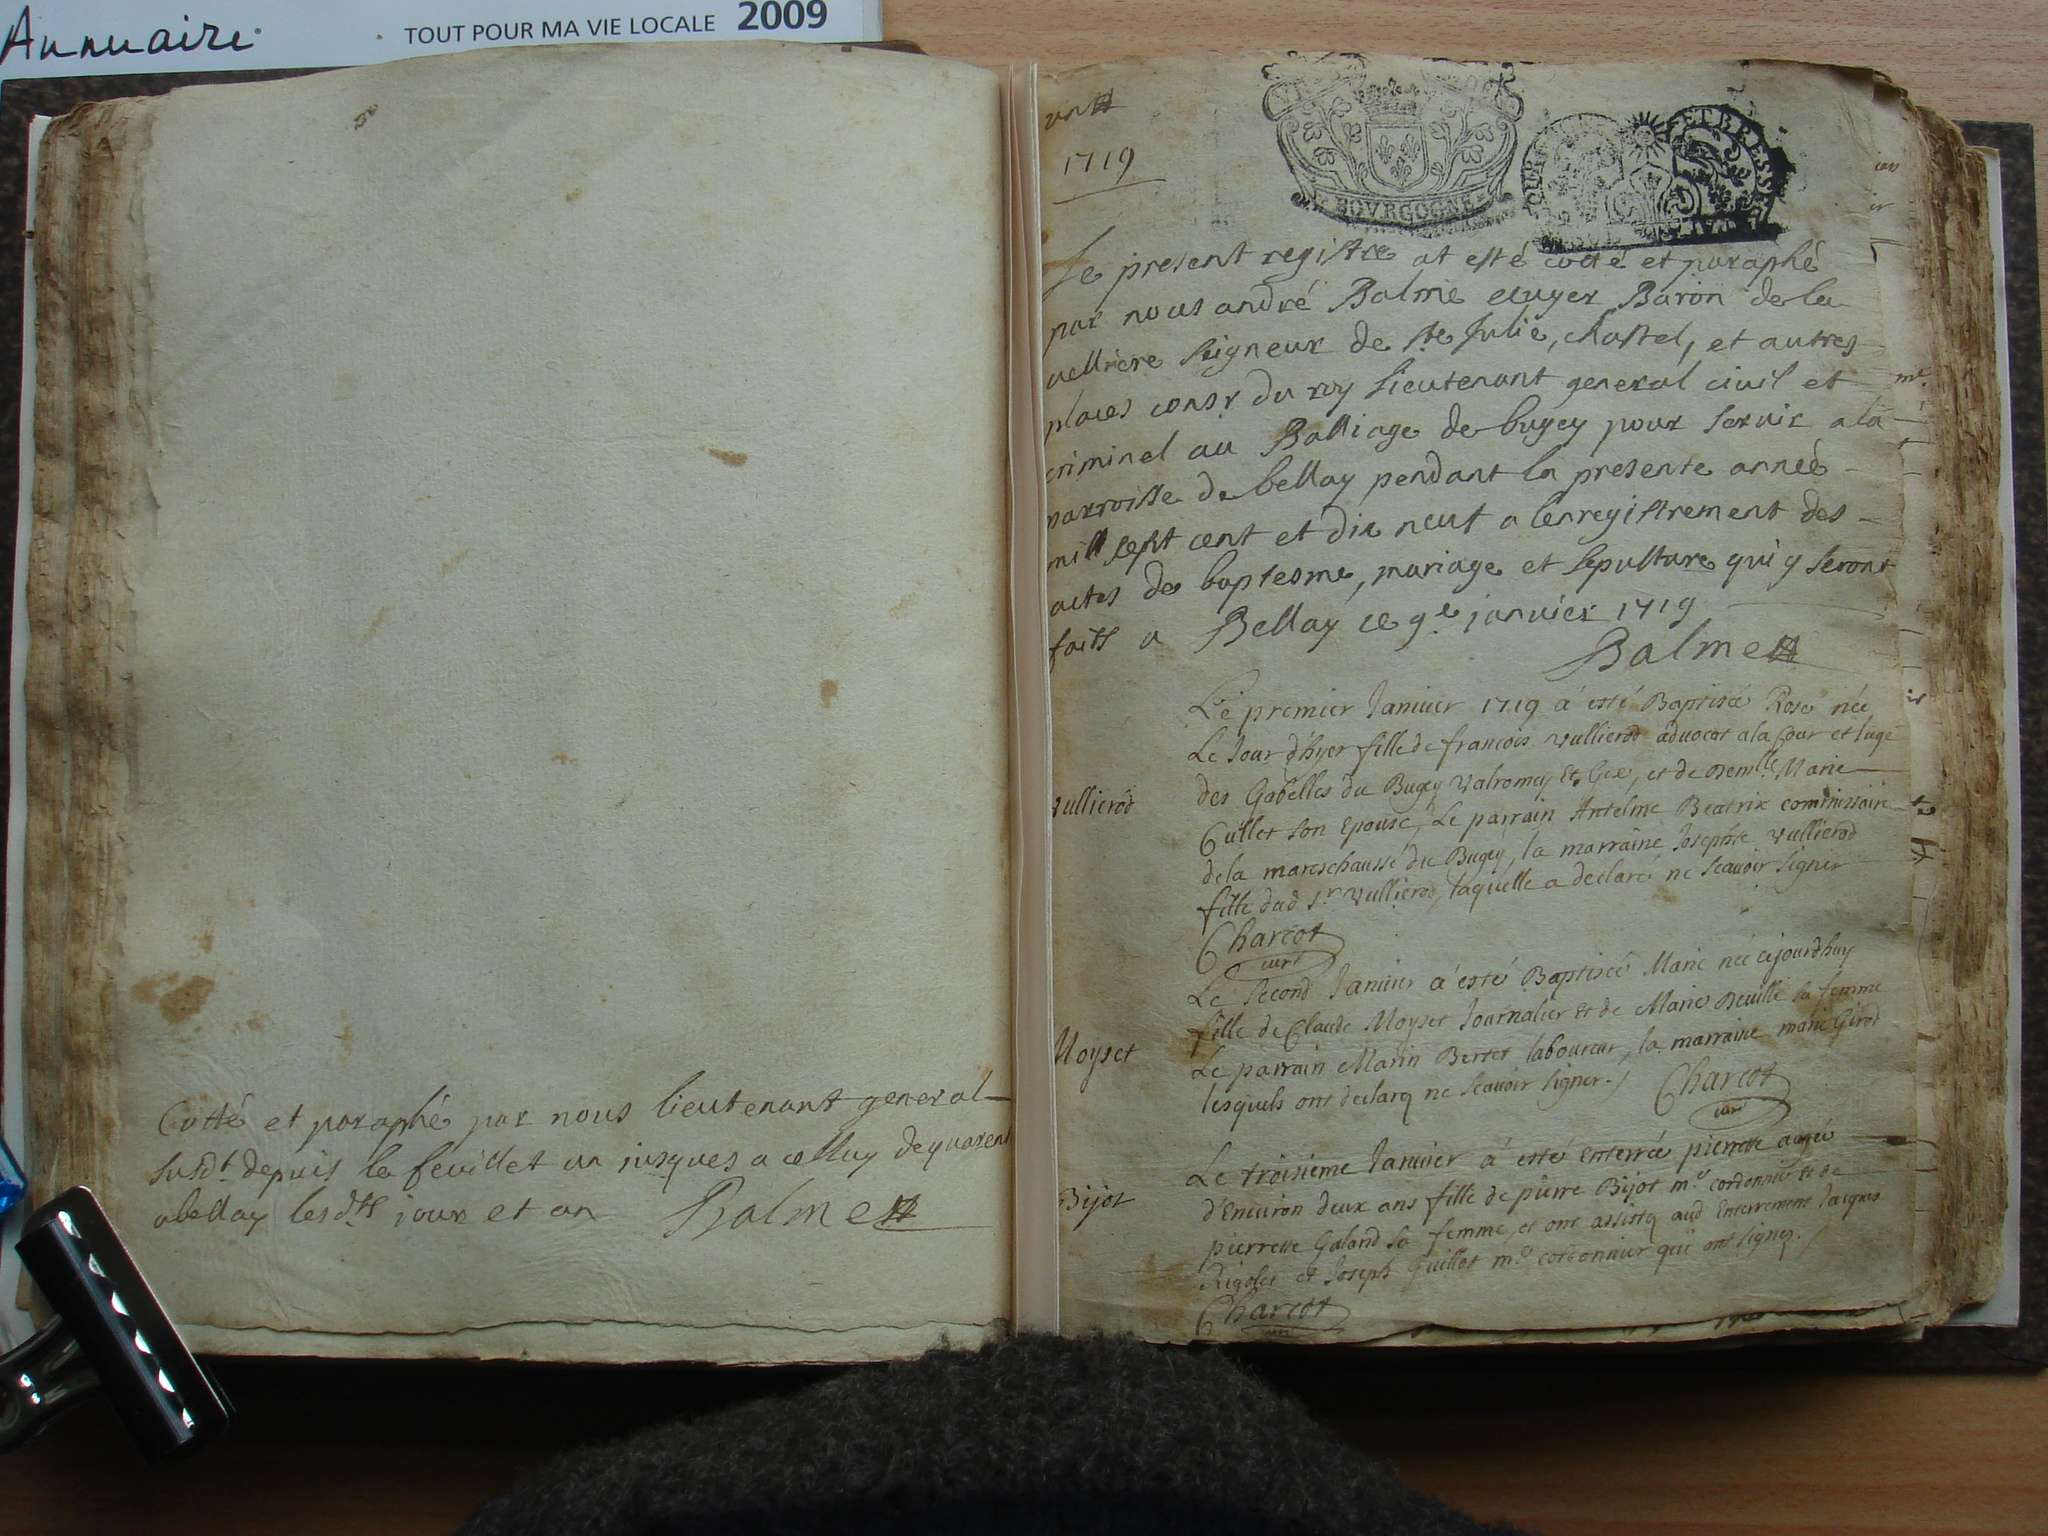 Annuaire
TOUT POUR MA VIE LOCALE 2009
Cotté et paraphé par nous lieutenant general
susdt depuis le feuillet un jusques a celluy de quarent
a bellay lesdts jour et an Balme
un
1719
BOVRGOGNE
ET BRESSE
Le present registre at esté cotté et paraphé
par nous andré Balme ecuyer Baron de la
vellriere seigneur de Ste Julie, Chastel, et autres
places consr du roy lieutenant general civil et
criminel au Balliage de bugey pour servir a la
parroisse de bellay pendant la presente année
mill sept cent et dix neuf a lenregistrement des
actes de baptesme, mariage et sepulture qui y seront
faits a Bellay ce 9e janvier 1719
Balme
Le premier Janvier 1719 á esté Baptisée Rose née
Le Jour d'hyer fille de francois vullierod advocat a la Cour et Juge
vullierod
des Gabelles du Bugey Valromey Et Gex, et de Demlle Marie
Guillet son Epouse, Le parrain Antelme Beatrix commissaire
de la mareschaussé du Bugey, la marraine Josephte vullierod
fille dud Sr vullierod, laquelle a declaré ne scavoir signer
Charcot
curé
Le second Janvier á esté Baptisée Marie née cejourdhuy
Moyset
fille de Claude Moyset Journalier et de Marie Deville sa femme
Le parrain Marin Berret laboureur, la marraine marie Girod
lesquels ont declarq ne scavoir signer. Charcot
curé
Le troisieme Janvier á esté enterrée pierrette ageé
Bijot
d'Environ deux ans fille de pierre Bijot me cordonnier et de
pierrette Galand sa femme, et ont assistq aud Enterrement Jacques
Rigolet et Joseph Guillot me cordonnier qui ont signq.
Charcot
curé